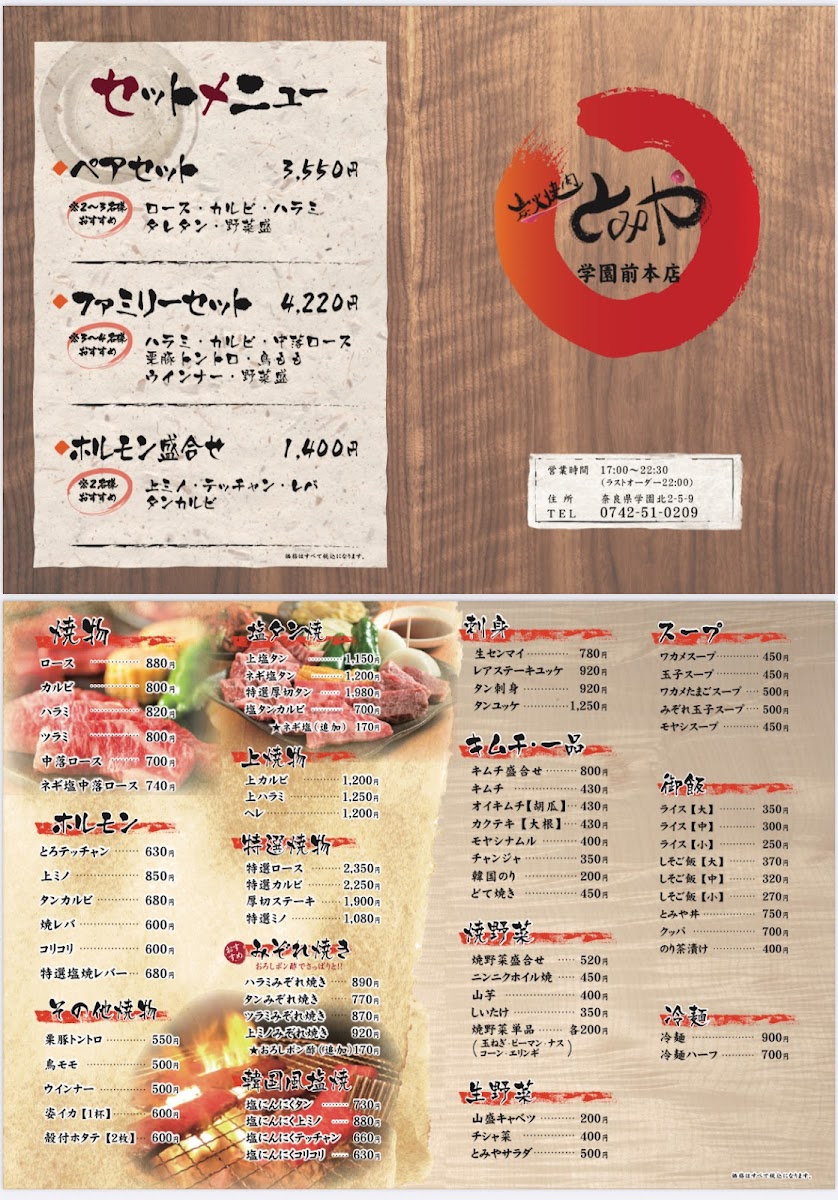 セットメニュー
◆ペアセット 3,550円
※2~3名様
おすすめ
ロース・カルビ・ハラミ
タレタン・野菜盛
◆ファミリーセット 4,220円
※3~4名様
おすすめ
ハラミ・カルビ・中落ロース
栗豚トントロ・鳥もも
ウインナー・野菜盛
◆ホルモン盛合せ 1,400円
※2名様
おすすめ
上ミノ・テッチャン・レバ
タンカルビ
価格はすべて税込になります。
炭火焼肉
とみや
学園前本店
営業時間 17:00〜22:30
(ラストオーダー22:00)
住所 奈良県学園北2-5-9
TEL 0742-51-0209
焼物
ロース ………… 880円
カルビ ………… 800円
ハラミ ………… 820円
ツラミ ………… 800円
中落ロース …… 700円
ネギ塩中落ロース 740円
ホルモン
とろテッチャン …… 630円
上ミノ ………… 850円
タンカルビ …… 680円
焼レバ ………… 600円
コリコリ ……… 600円
特選塩焼レバー… 680円
その他焼物
栗豚トントロ …… 550円
鳥モモ ………… 500円
ウインナー …… 500円
姿イカ【1杯】…… 600円
殻付ホタテ【2枚】… 600円
塩タン焼
上塩タン ……… 1,150円
ネギ塩タン …… 1,200円
特選厚切タン … 1,980円
塩タンカルビ …… 700円
★ネギ塩(追加) 170円
上焼物
上カルビ ……… 1,200円
上ハラミ ……… 1,250円
ヘレ …………… 1,200円
特選焼物
特選ロース …… 2,350円
特選カルビ …… 2,250円
厚切ステーキ … 1,900円
特選ミノ ……… 1,080円
おすすめ
みぞれ焼き
おろしポン酢でさっぱりと!!
ハラミみぞれ焼き … 890円
タンみぞれ焼き …… 770円
ツラミみぞれ焼き … 870円
上ミノみぞれ焼き … 920円
★おろしポン酢(追加)170円
韓国風塩焼
塩にんにくタン …… 730円
塩にんにく上ミノ … 880円
塩にんにくテッチャン 660円
塩にんにくコリコリ … 630円
刺身
生センマイ ……… 780円
レアステーキユッケ 920円
タン刺身 ……… 920円
タンユッケ …… 1,250円
キムチ・一品
キムチ盛合せ …… 800円
キムチ ………… 430円
オイキムチ【胡瓜】… 430円
カクテキ【大根】… 430円
モヤシナムル …… 400円
チャンジャ …… 350円
韓国のり ……… 200円
どて焼き ……… 450円
焼野菜
焼野菜盛合せ …… 520円
ニンニクホイル焼 … 450円
山芋 …………… 400円
しいたけ ……… 350円
焼野菜単品 …… 各200円
(玉ねぎ・ピーマン・ナス
コーン・エリンギ)
生野菜
山盛キャベツ …… 200円
チシャ菜 ……… 400円
とみやサラダ …… 500円
スープ
ワカメスープ …… 450円
玉子スープ …… 450円
ワカメたまごスープ … 500円
みぞれ玉子スープ … 500円
モヤシスープ …… 450円
御飯
ライス【大】 …… 350円
ライス【中】 …… 300円
ライス【小】 …… 250円
しそご飯【大】 … 370円
しそご飯【中】 … 320円
しそご飯【小】 … 270円
とみや丼 ……… 750円
クッパ ………… 700円
のり茶漬け …… 400円
冷麺
冷麺 …………… 900円
冷麺ハーフ …… 700円
価格はすべて税込になります。